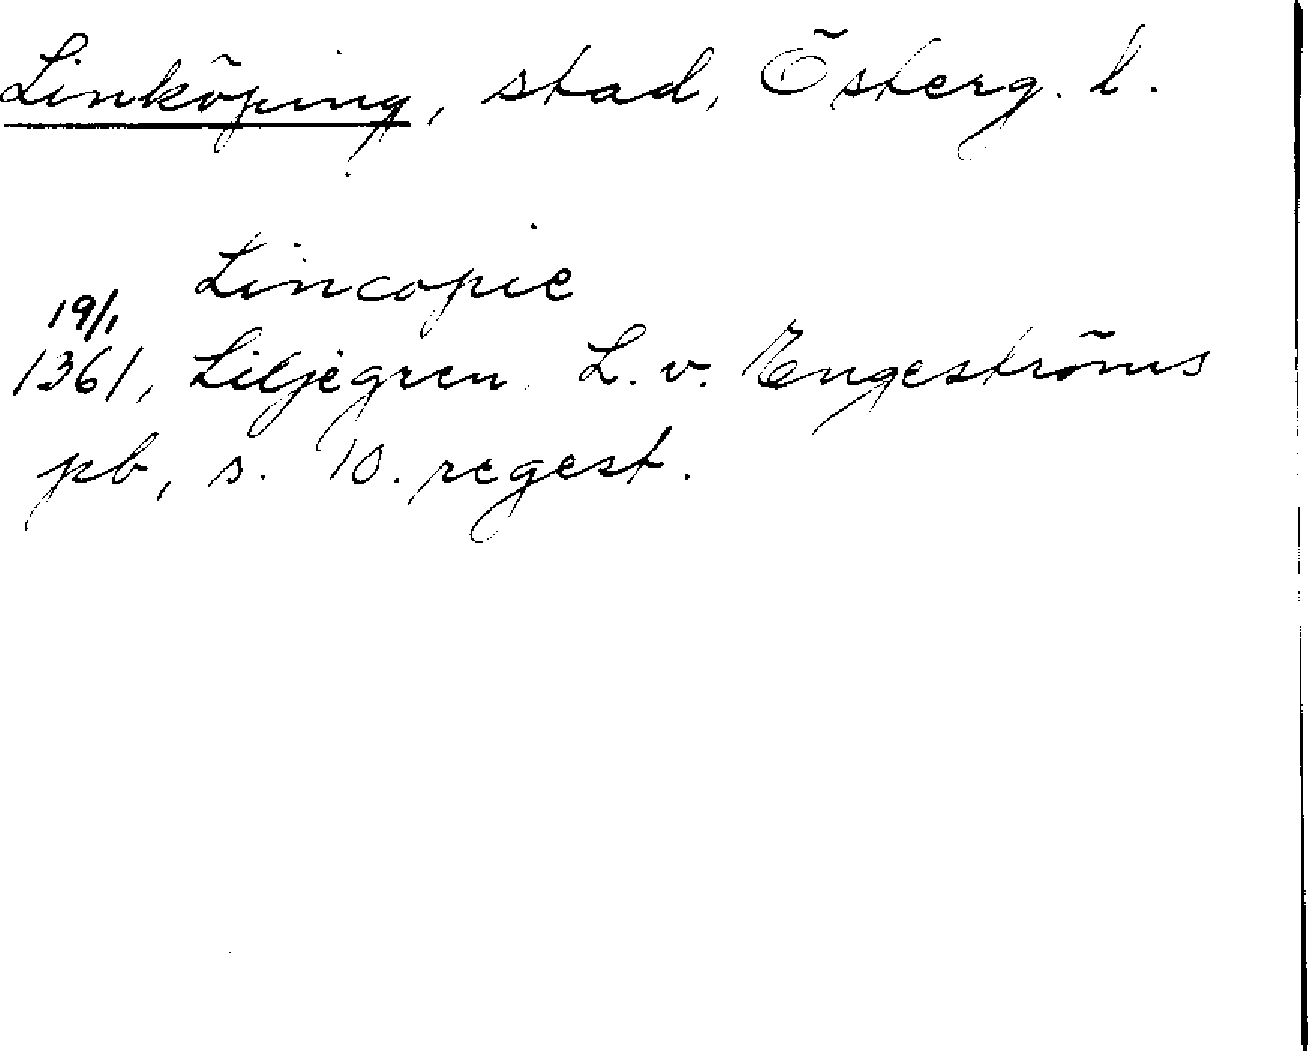 Linköping, stad, Österg. l.
Lincopie
19/1
1361, Liljegren. L. v. Engeströms
pb, s. 10. regest.